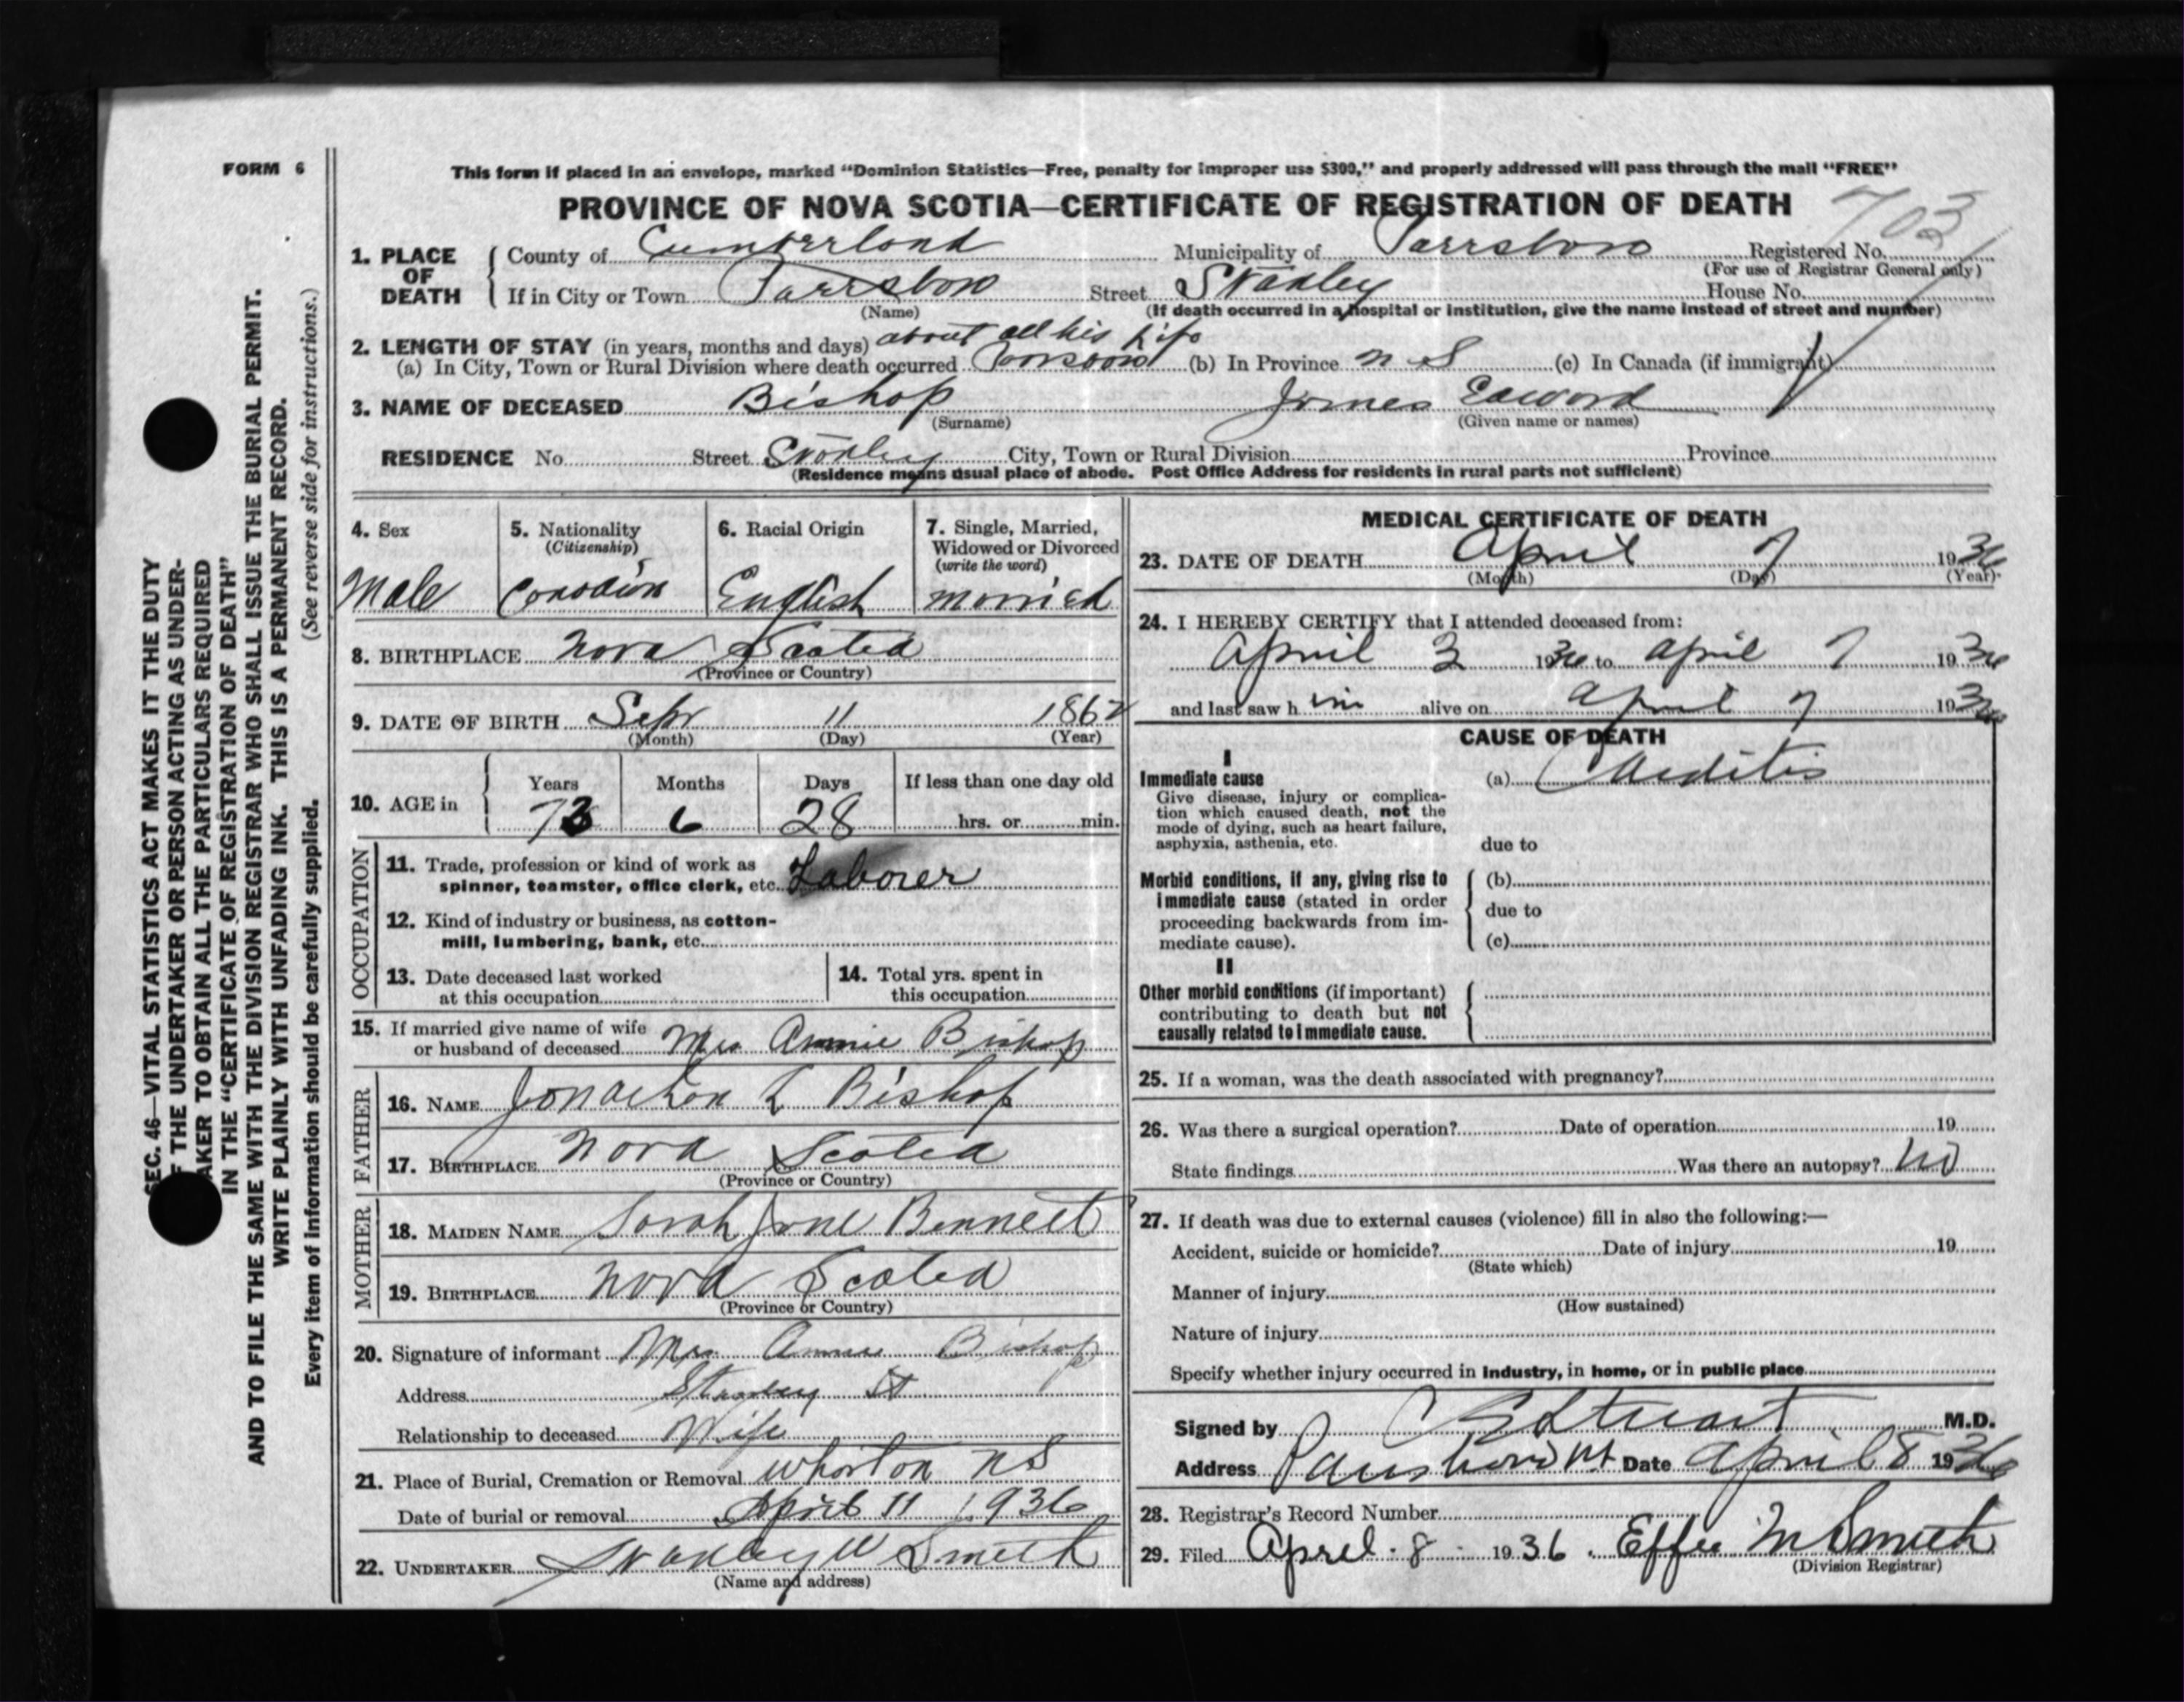 FORM 6
This form if placed in an envelope, marked "Dominion Statistics—Free, penalty for improper use $300," and properly addressed will pass through the mail "FREE"
PROVINCE OF NOVA SCOTIA—CERTIFICATE OF REGISTRATION OF DEATH
703
1. PLACE OF DEATH
County of Cumberland Municipality of Parrsboro Registered No.
(For use of Registrar General only)
If in City or Town Parrsboro Street Stanley House No.
(Name) (If death occurred in a hospital or institution, give the name instead of street and number)
2. LENGTH OF STAY (in years, months and days) about all his life
(a) In City, Town or Rural Division where death occurred Parrsboro (b) In Province N S (c) In Canada (if immigrant)
3. NAME OF DECEASED Bishop James Edward
(Surname) (Given name or names)
RESIDENCE No. Street Stanley City, Town or Rural Division Province
(Residence means usual place of abode. Post Office Address for residents in rural parts not sufficient)
4. Sex
Male
5. Nationality
(Citizenship)
Canadian
6. Racial Origin
English
7. Single, Married,
Widowed or Divorced
(write the word)
married
8. BIRTHPLACE Nova Scotia
(Province or Country)
9. DATE OF BIRTH Sept 11 1862
(Month) (Day) (Year)
10. AGE in
Years Months Days If less than one day old
73 6 28 hrs. or min.
OCCUPATION
11. Trade, profession or kind of work as
spinner, teamster, office clerk, etc. Laborer
12. Kind of industry or business, as cotton-
mill, lumbering, bank, etc.
13. Date deceased last worked
at this occupation
14. Total yrs. spent in
this occupation
15. If married give name of wife
or husband of deceased Mrs Annie Bishop
FATHER
16. NAME Jonathon L Bishop
17. BIRTHPLACE Nova Scotia
(Province or Country)
MOTHER
18. MAIDEN NAME Sarah Jane Bennett
19. BIRTHPLACE Nova Scotia
(Province or Country)
20. Signature of informant Mrs Annie Bishop
Address Stanley St
Relationship to deceased Wife
21. Place of Burial, Cremation or Removal Wharton N S
Date of burial or removal April 11 1936
22. UNDERTAKER Stanley W Smith
(Name and address)
MEDICAL CERTIFICATE OF DEATH
23. DATE OF DEATH April 7 1936
(Month) (Day) (Year)
24. I HEREBY CERTIFY that I attended deceased from:
April 3 1936 to April 7 1936
and last saw him alive on April 7 1936
CAUSE OF DEATH
I
Immediate cause
Give disease, injury or complica-
tion which caused death, not the
mode of dying, such as heart failure,
asphyxia, asthenia, etc.
(a) Carditis
due to
Morbid conditions, if any, giving rise to
immediate cause (stated in order
proceeding backwards from im-
mediate cause).
(b)
due to
(c)
II
Other morbid conditions (if important)
contributing to death but not
causally related to immediate cause.
25. If a woman, was the death associated with pregnancy?
26. Was there a surgical operation? Date of operation 19
State findings Was there an autopsy? No
27. If death was due to external causes (violence) fill in also the following:—
Accident, suicide or homicide? Date of injury 19
(State which)
Manner of injury
(How sustained)
Nature of injury
Specify whether injury occurred in industry, in home, or in public place
Signed by Stuart M.D.
Address Parrsboro NS Date April 8 1936
28. Registrar's Record Number
29. Filed April 8 1936. Effie M Smith
(Division Registrar)
SEC. 46—VITAL STATISTICS ACT MAKES IT THE DUTY
F THE UNDERTAKER OR PERSON ACTING AS UNDER-
AKER TO OBTAIN ALL THE PARTICULARS REQUIRED
IN THE "CERTIFICATE OF REGISTRATION OF DEATH"
AND TO FILE THE SAME WITH THE DIVISION REGISTRAR WHO SHALL ISSUE THE BURIAL PERMIT.
WRITE PLAINLY WITH UNFADING INK. THIS IS A PERMANENT RECORD.
Every item of information should be carefully supplied. (See reverse side for instructions.)